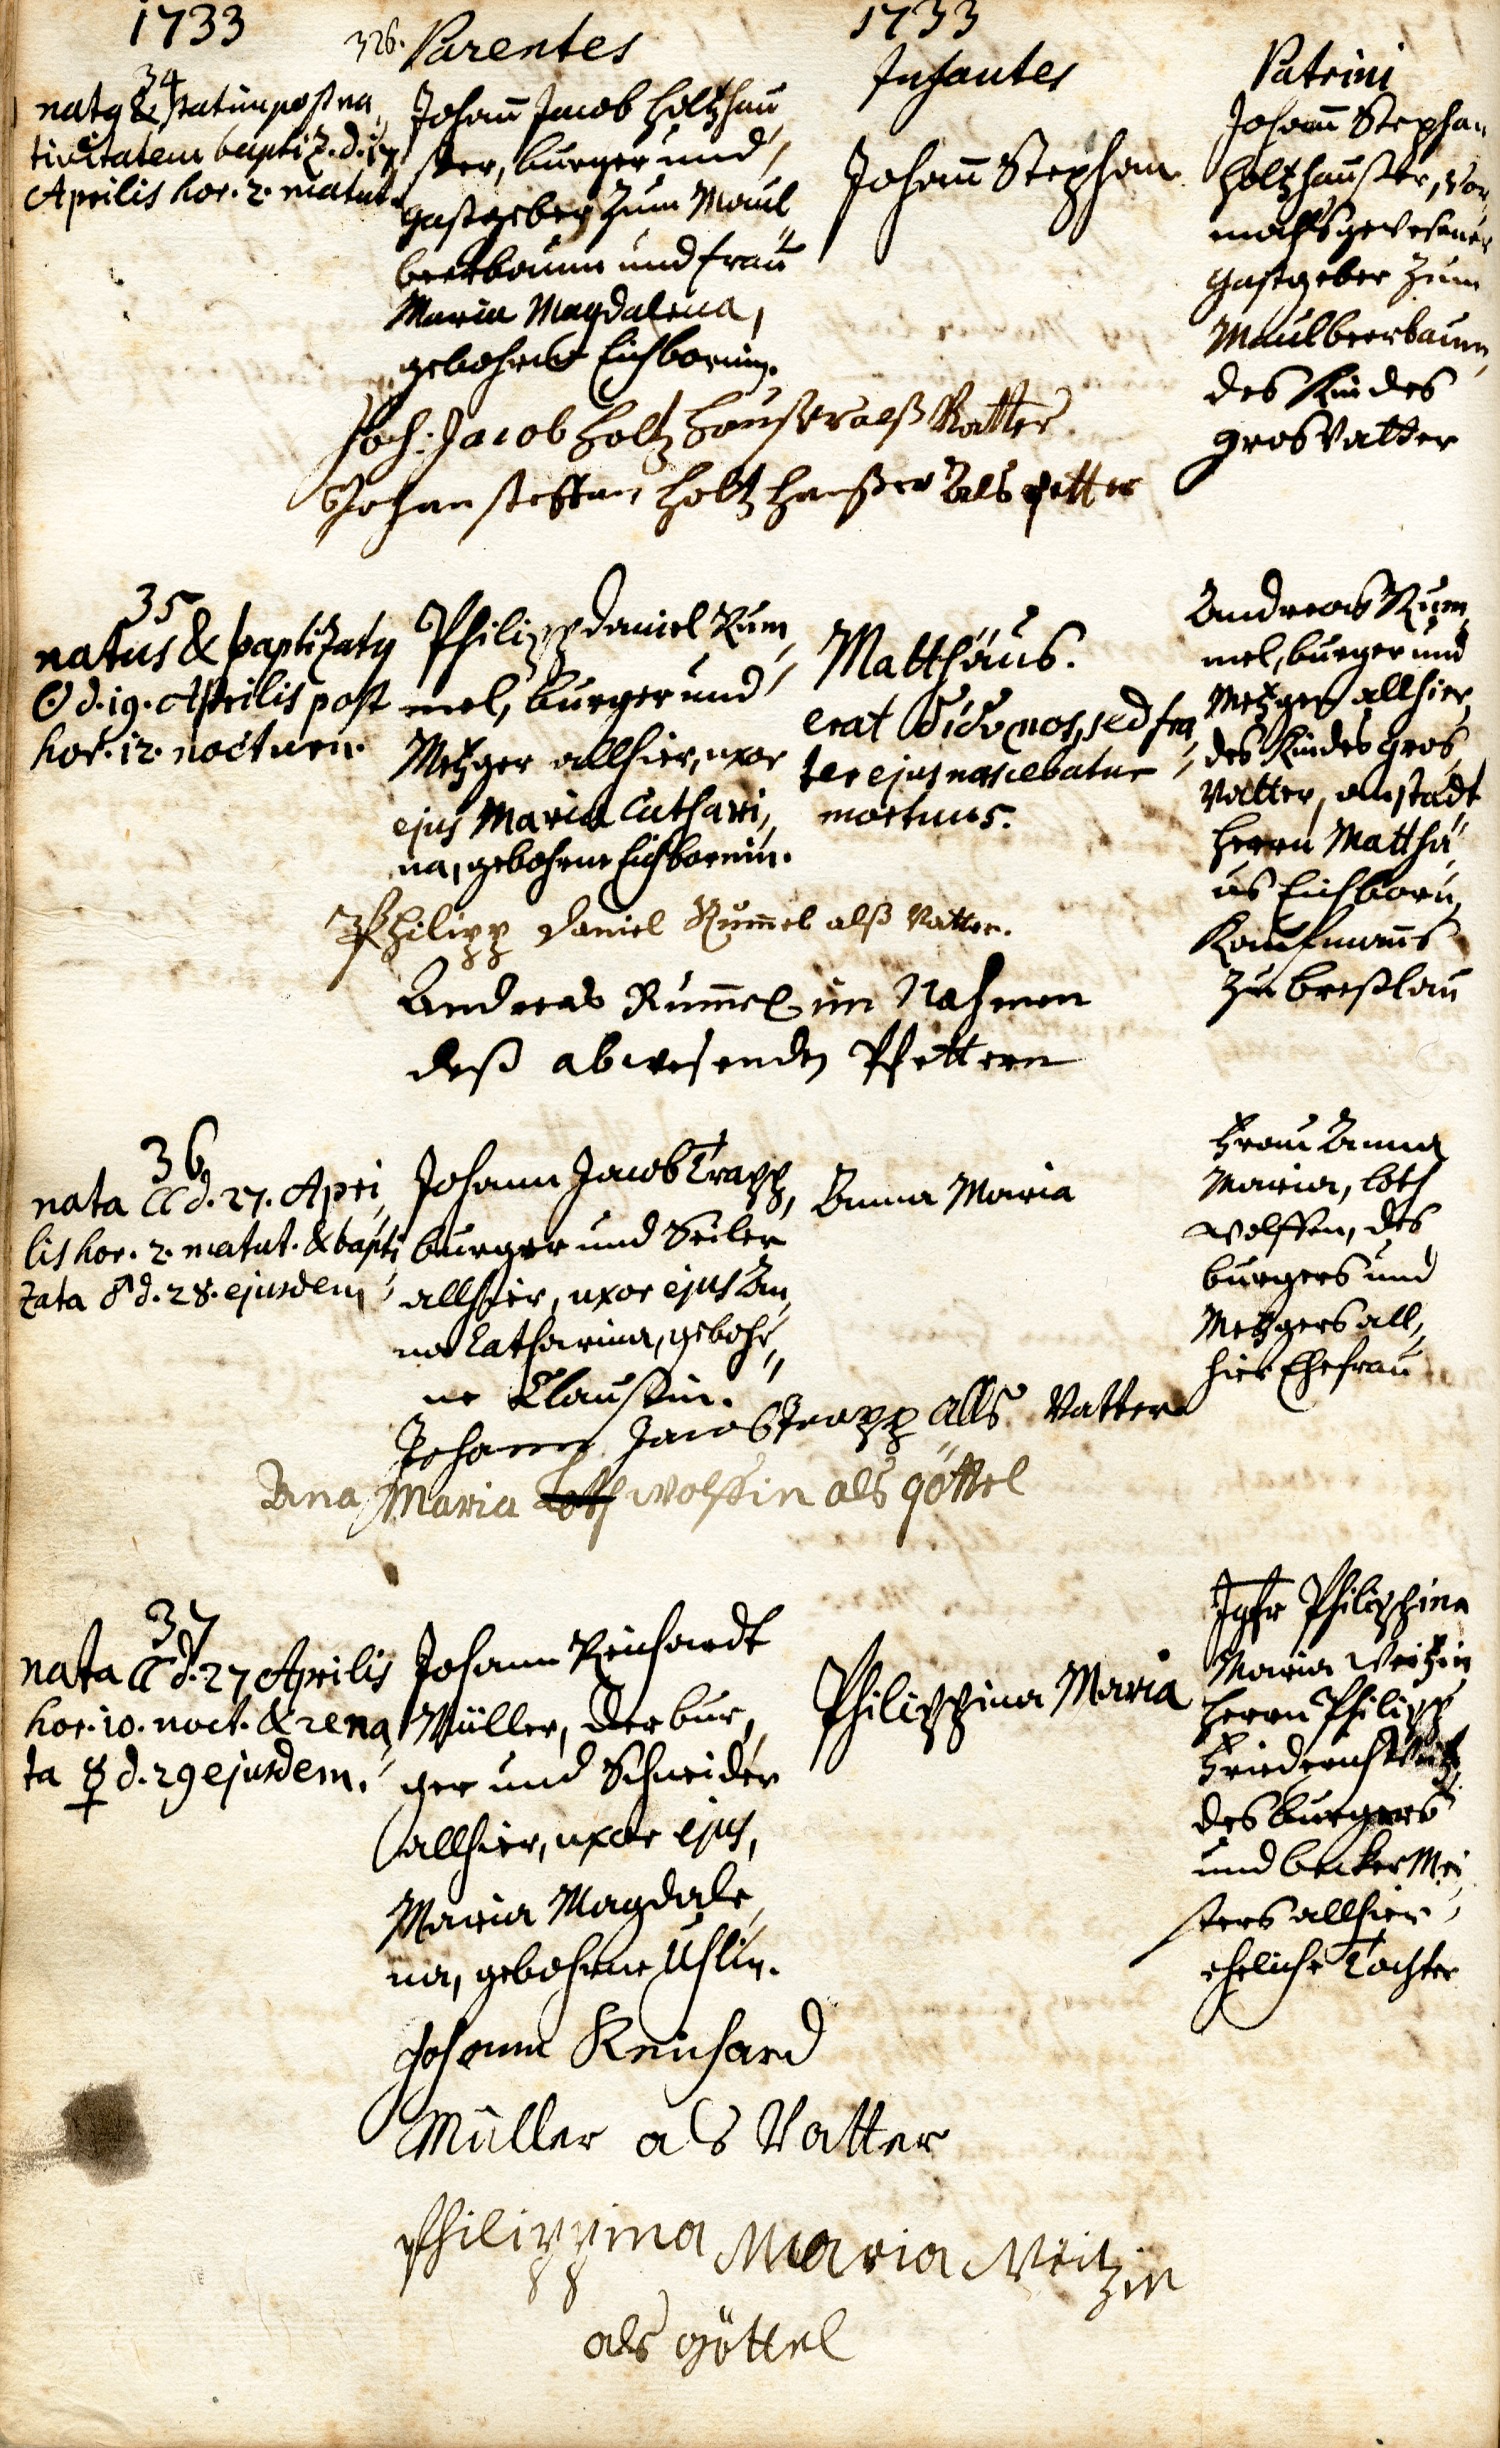 1733
326. Parentes
1733
Infantes
Patrini
34
natq & statim post na,
tivitatem baptiz. d. 17
Aprilis hor. 2. matut.
Johan̄ Jacob Holtzhau
ser, burger und
gastgeber zum Maul,
beerbaum und frau
Maria Magdalena,
gebohrne Eichbornin.
Johan̄ Stephan
Johan̄ Stephan
Holtzhausser, vor,
mahls gewesener
gastgeber zum
Maulbeerbaum,
des Kindes
grosvatter
Joh: Jacob Holtz haußer alß Vatter
Johan steffan holtz haußer als pfetter
35
natus & baptizatq
☉ d. 19. Aprilis post
hor. 12. nocturn.
Philipp Daniel Rum,
mel, burger und
Metzger allhier, uxor
ejus Maria Cathari,
na, gebohrne Eichbornin.
Matthäus.
erat didymos, sed fra,
ter ejus nascebatur
mortuus.
Andreas Rum,
mel, burger und
Metzger allhier,
des Kindes gros,
vatter, anstadt
Herrn Matthä,
us Eichborn,
Kaufmanns
zu breßlau
Philipp Daniel Rum̄el alß Vatter.
Andreas Rum̄el im Nahmen
deß abwesenden Pfettern
36
nata ☾ d. 27. Apri,
lis hor. 2. matut. & bapti
zata ♂ d. 28. ejusdem
Johann Jacob Trapp,
burger und Seiler
allhier, uxor ejus An,
na Catharina, gebohr,
ne Claussin.
Anna Maria
Frau Anna
Maria, Loth
Wolffen, des
burgers und
Metzgers all,
hier Ehefrau
Johann Jacob Trapp alls Vatter
Ana Maria Loth wolffin als göttel
37
nata ☾ d. 27 Aprilis
hor. 10. noct. & rena,
ta ☿ d. 29 ejusdem.
Johann Reinhardt
Müller, der bur,
ger und Schneider
allhier, uxor ejus,
Maria Magdale,
na, gebohrne Uhlin.
Philippina Maria
Jgfr Philippina
Maria Weitzin
Herrn Philipp
Friederich Weitz,
des burgers
und becker Mei
sters allhier
eheliche Tochter
Johann Reinhard
Müller als Vatter
Philippina Maria Weitzin
als göttel